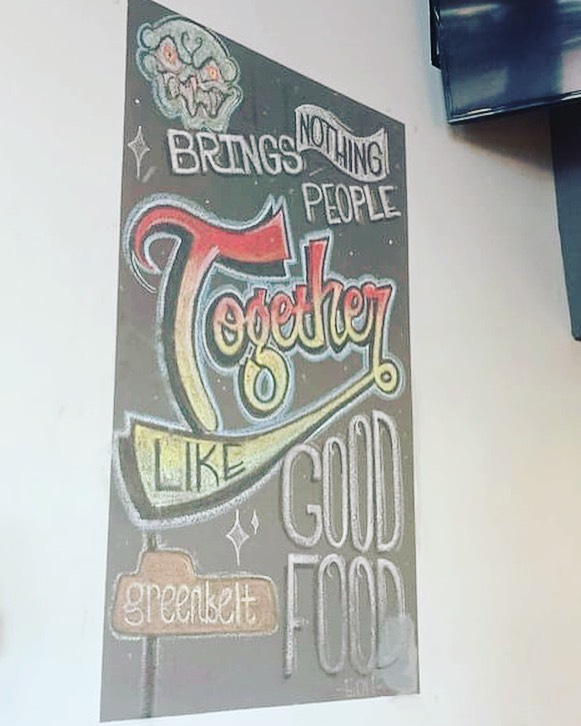 NOTHING
BRINGS
PEOPLE
Together
LIKE
GOOD
FOOD
greenbelt